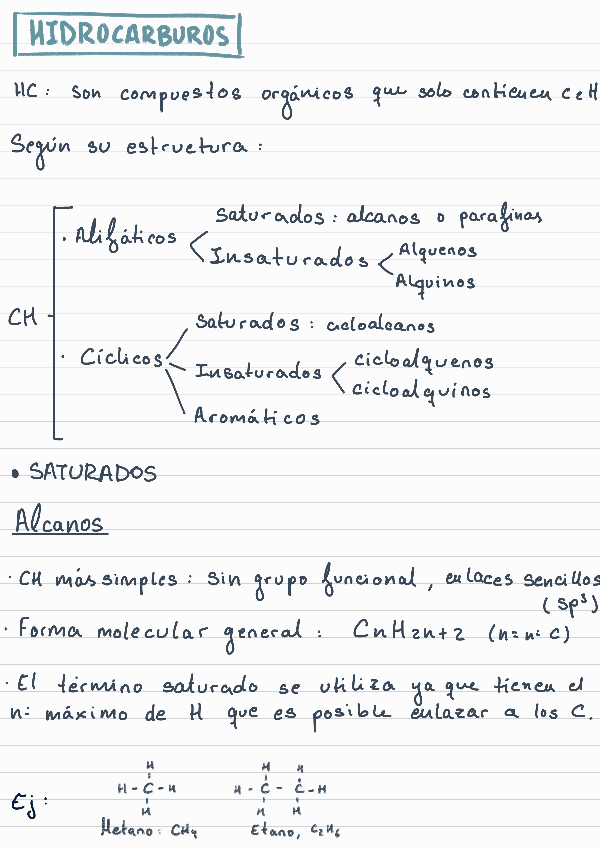 HIDROCARBUROS
HC: Son compuestos orgánicos que solo contienen C e H
Según su estructura:
CH
· Alifáticos
Saturados: alcanos o parafinas
Insaturados
Alquenos
Alquinos
· Cíclicos
Saturados: cicloalcanos
Insaturados
cicloalquenos
cicloalquinos
Aromáticos
• SATURADOS
Alcanos
· CH más simples: Sin grupo funcional, enlaces sencillos
(sp³)
· Forma molecular general: CnH2n+2 (n = nº C)
· El término saturado se utiliza ya que tienen el
nº máximo de H que es posible enlazar a los C.
Ej:
H H H
H - C - H H - C - C - H
H H H
Metano: CH4 Etano, C2H6